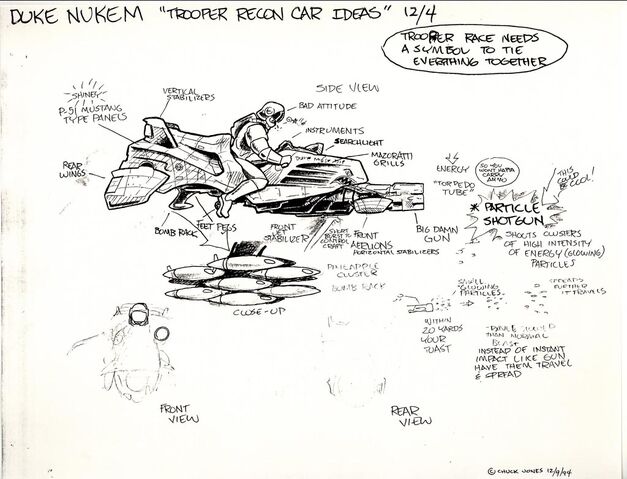 DUKE NUKEM "TROOPER RECON CAR IDEAS" 12/4
TROOPER RACE NEEDS
A SYMBOL TO TIE
EVERYTHING TOGETHER
SHINEY
P-51 MUSTANG
TYPE PANELS
VERTICAL
STABILIZERS
SIDE VIEW
BAD ATTITUDE
INSTRUMENTS
SEARCHLIGHT
MAZORATTI
GRILLS
REAR
WINGS
BOMB RACK
FEET PEGS
FRONT
JET
STABILIZER
SHORT
BURST TO
CONTROL
CRAFT
FRONT
AERLIONS
HORIZONTAL STABILIZERS
BIG DAMN
GUN
PINEAPPLE
CLUSTER
BOMB RACK
CLOSE-UP
ENERGY
"TORPEDO
TUBE"
SO YOU
WON'T HAFTA
CARRY
AMMO
THIS
COULD
BE COOL!
* PARTICLE
SHOTGUN
SHOOTS CLUSTERS
OF HIGH INTENSITY
OF ENERGY (GLOWING)
PARTICLES
SMALL
GLOWING
PARTICLES
SPREADS
FURTHER
IT TRAVELS
WITHIN
20 YARDS
YOUR
TOAST
THAN NORMAL
BLAST
INSTEAD OF INSTANT
IMPACT LIKE GUN
HAVE THEM TRAVEL
& SPREAD
FRONT
VIEW
REAR
VIEW
© CHUCK JONES 12/9/94